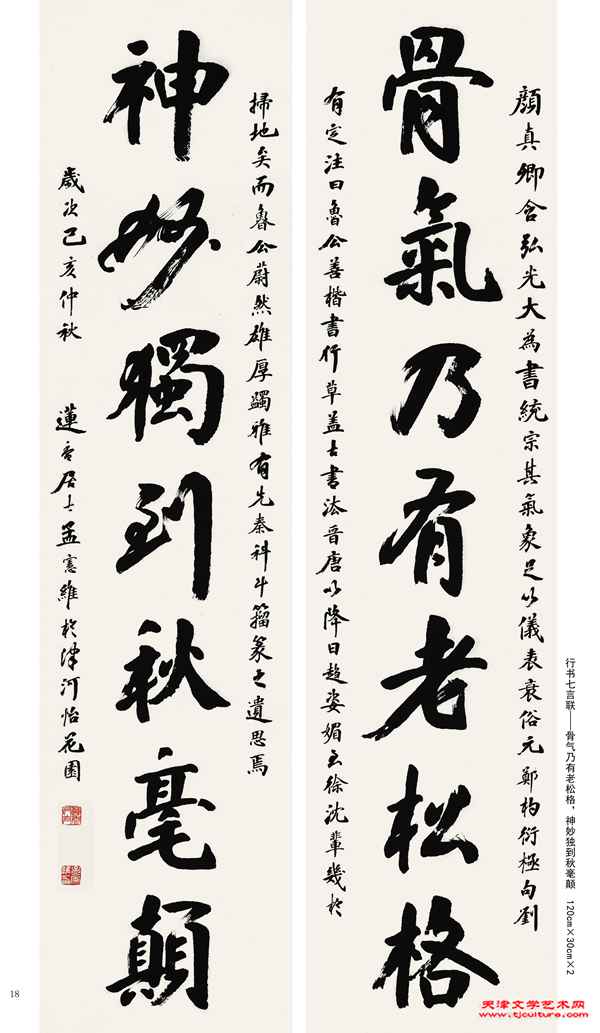 顏真卿含弘光大為書統宗其氣象足以儀表衰俗元鄭杓衍極句劉
骨氣乃有老松格
有定注曰魯公善楷書行草蓋古書法晉唐以降日趨姿媚至徐沈輩幾於
掃地矣而魯公蔚然雄厚蠲雅有先秦科斗籀篆之遺思焉
神妙獨到秋毫顛
歲次己亥仲秋 蓮
居士孟憲維於津河怡花園
行书七言联——骨气乃有老松格，神妙独到秋毫颠 120cm×30cm×2
18
天津文学艺术网
www.tjculture.com